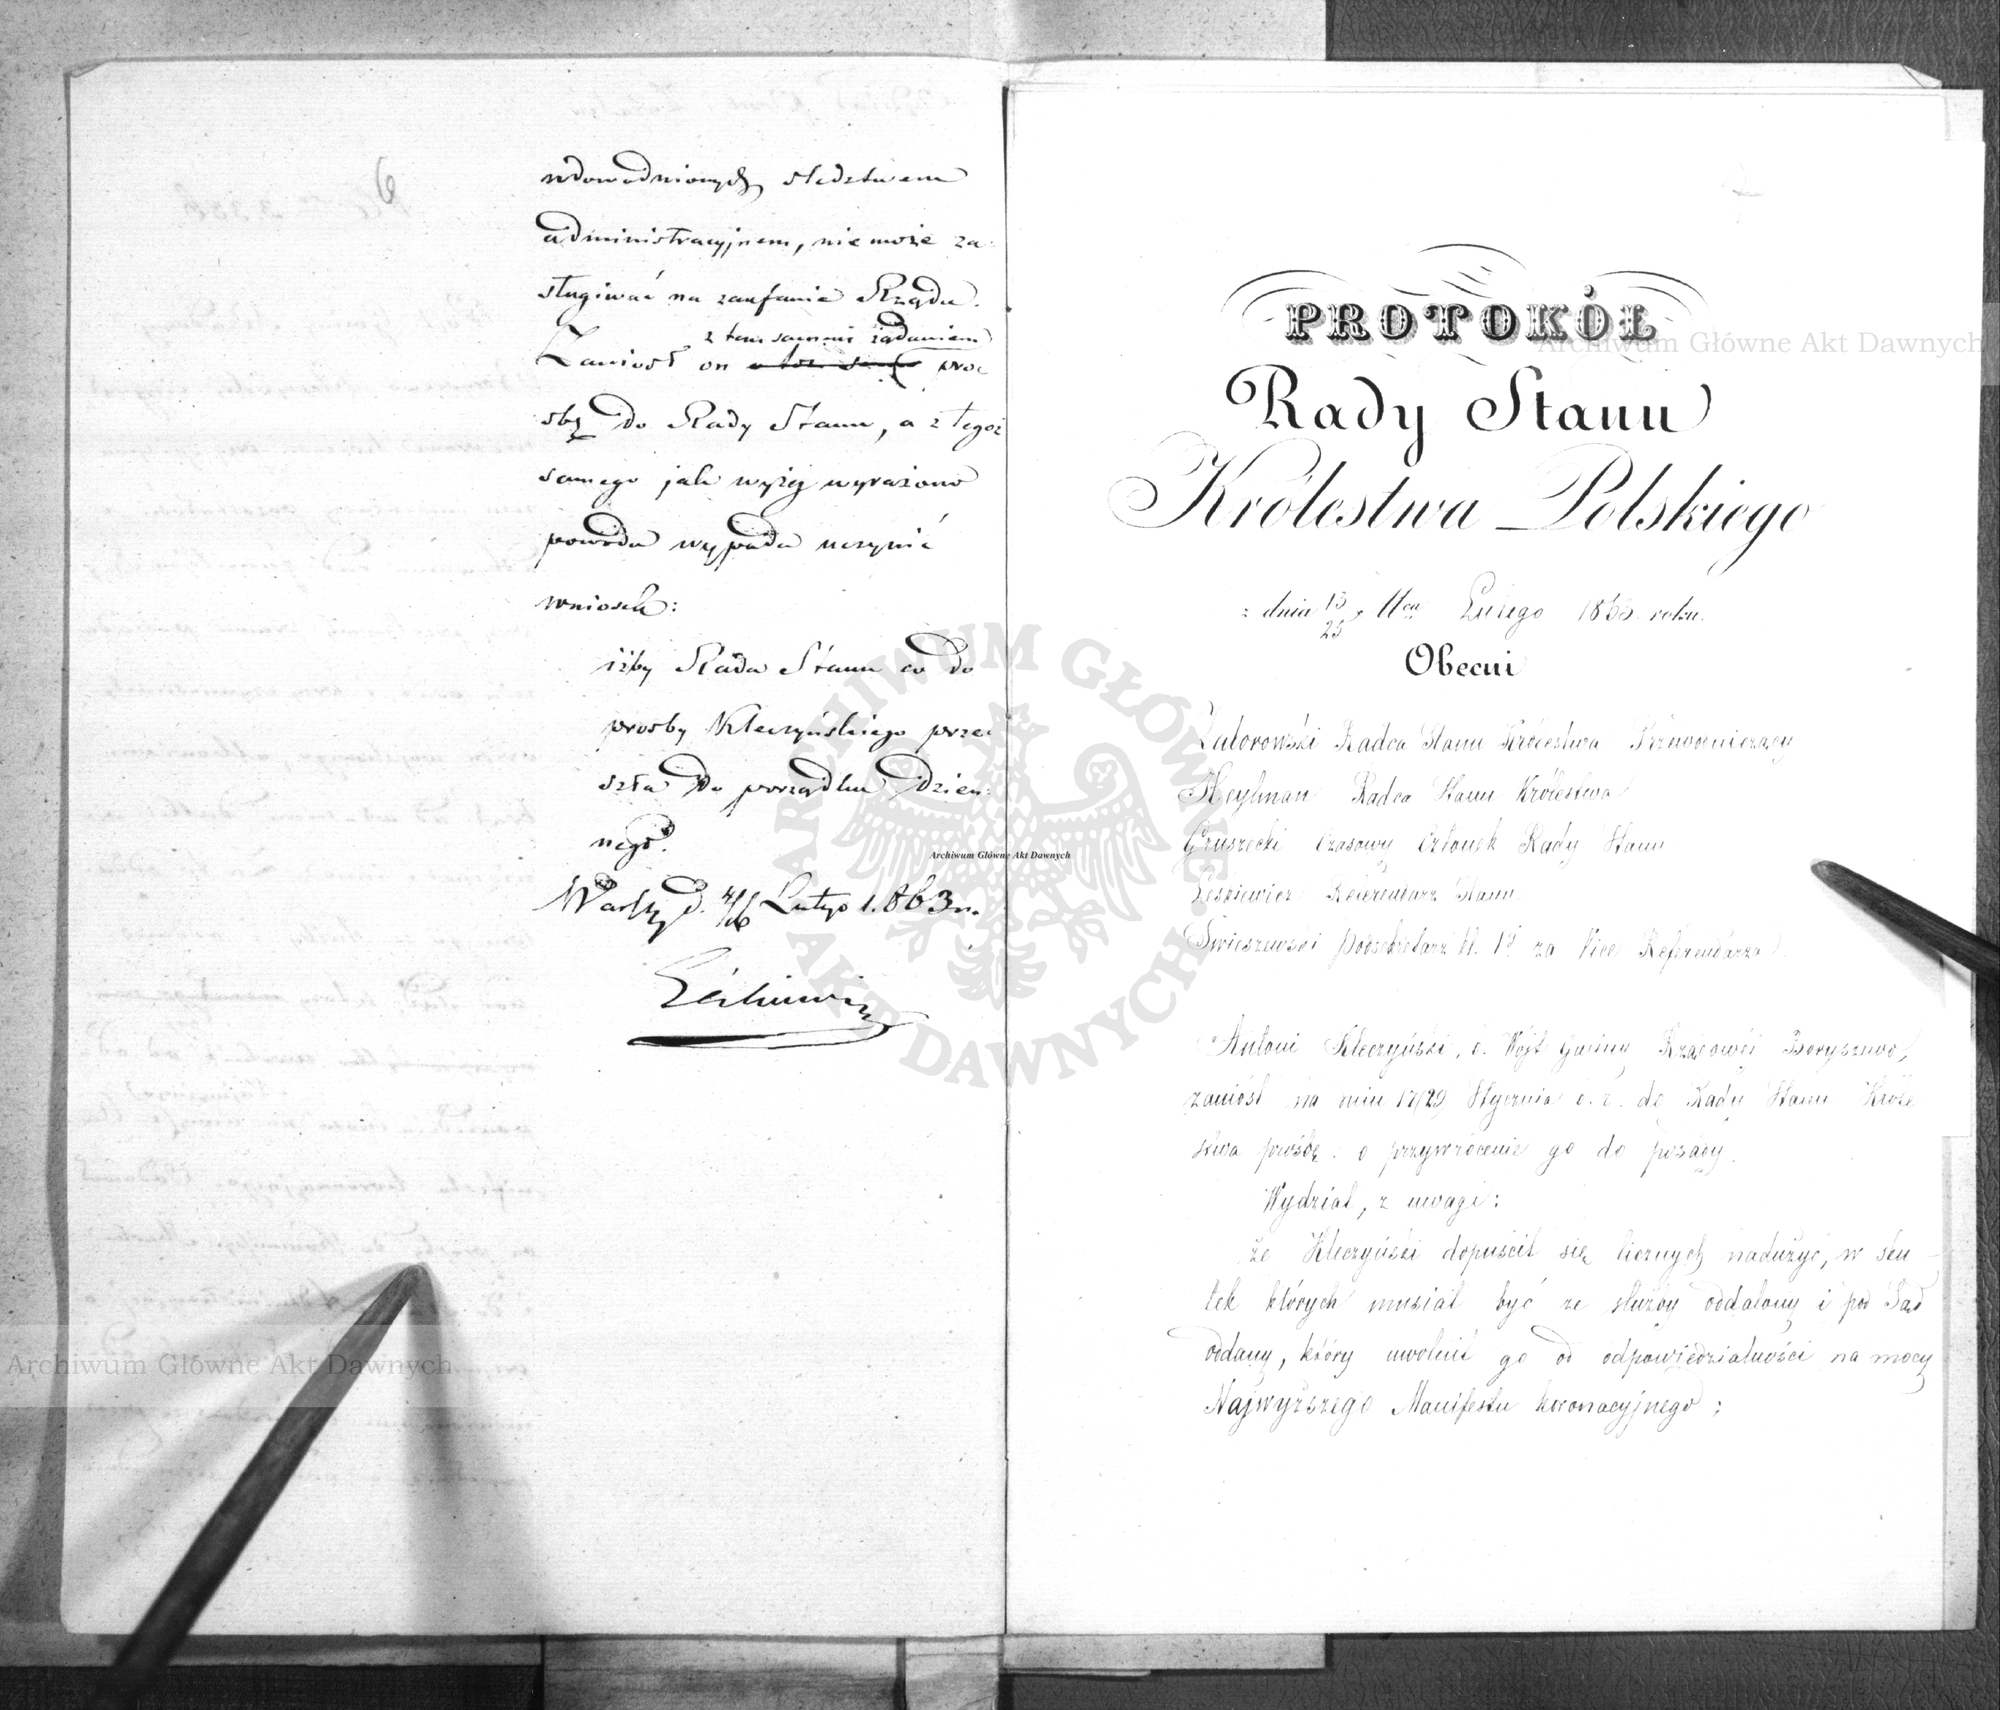 udowodnionych śledztwem
administracyjnem, nie może za-
sługiwać na zaufanie Rządu.
z tem samem żądaniem
Zaniósł on proś-
bę do Rady Stanu, a z tegoż
samego jak wyżej wyrażono
powodu wypada uczynić
wniosek:
iżby Rada Stanu co do
prośby Kleczyńskiego prze-
szła do porządku dzien-
nego.
Warsz. d. Lutego 1863 r.
Leśkiewicz
PROTOKÓŁ
Rady Stanu
Królestwa Polskiego
z dnia 13/25 Lutego 1863 roku.
Obecni
Zaborowski Radca Stanu Królestwa Przewodniczący
Heylman Radca Stanu Królestwa
Gruszecki Czasowy Członek Rady Stanu
Leśkiewicz Referendarz Stanu
Świeszewski Podsekretarz kl. 1 za Vice Referendarza
Antoni Kleczyński, b. Wójt Gminy Rządowéj Boryszewo,
zaniósł na dniu 17/29 Stycznia b. r. do Rady Stanu Króle
stwa prośbę o przywrócenie go do posady.
Wydział, z uwagi:
że Kleczyński dopuścił się licznych nadużyć, w sku-
tek których musiał być ze służby oddalony i pod Sąd
oddany, który uwolnił go od odpowiedzialności na mocy
Najwyższego Manifestu koronacyjnego;
Archiwum Główne Akt Dawnych
Archiwum Główne Akt Dawnych
Archiwum Główne Akt Dawnych
ARCHIWUM GŁÓWNE AKT DAWNYCH